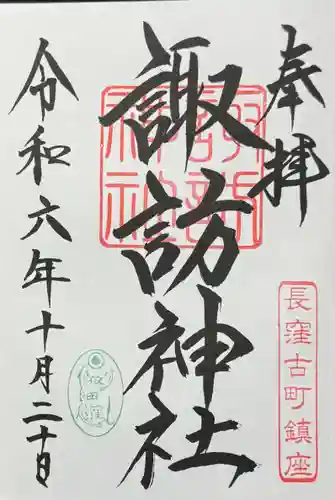 奉拝
長窪古町鎮座
諏訪神社
諏訪神社
令和六年十月二十日